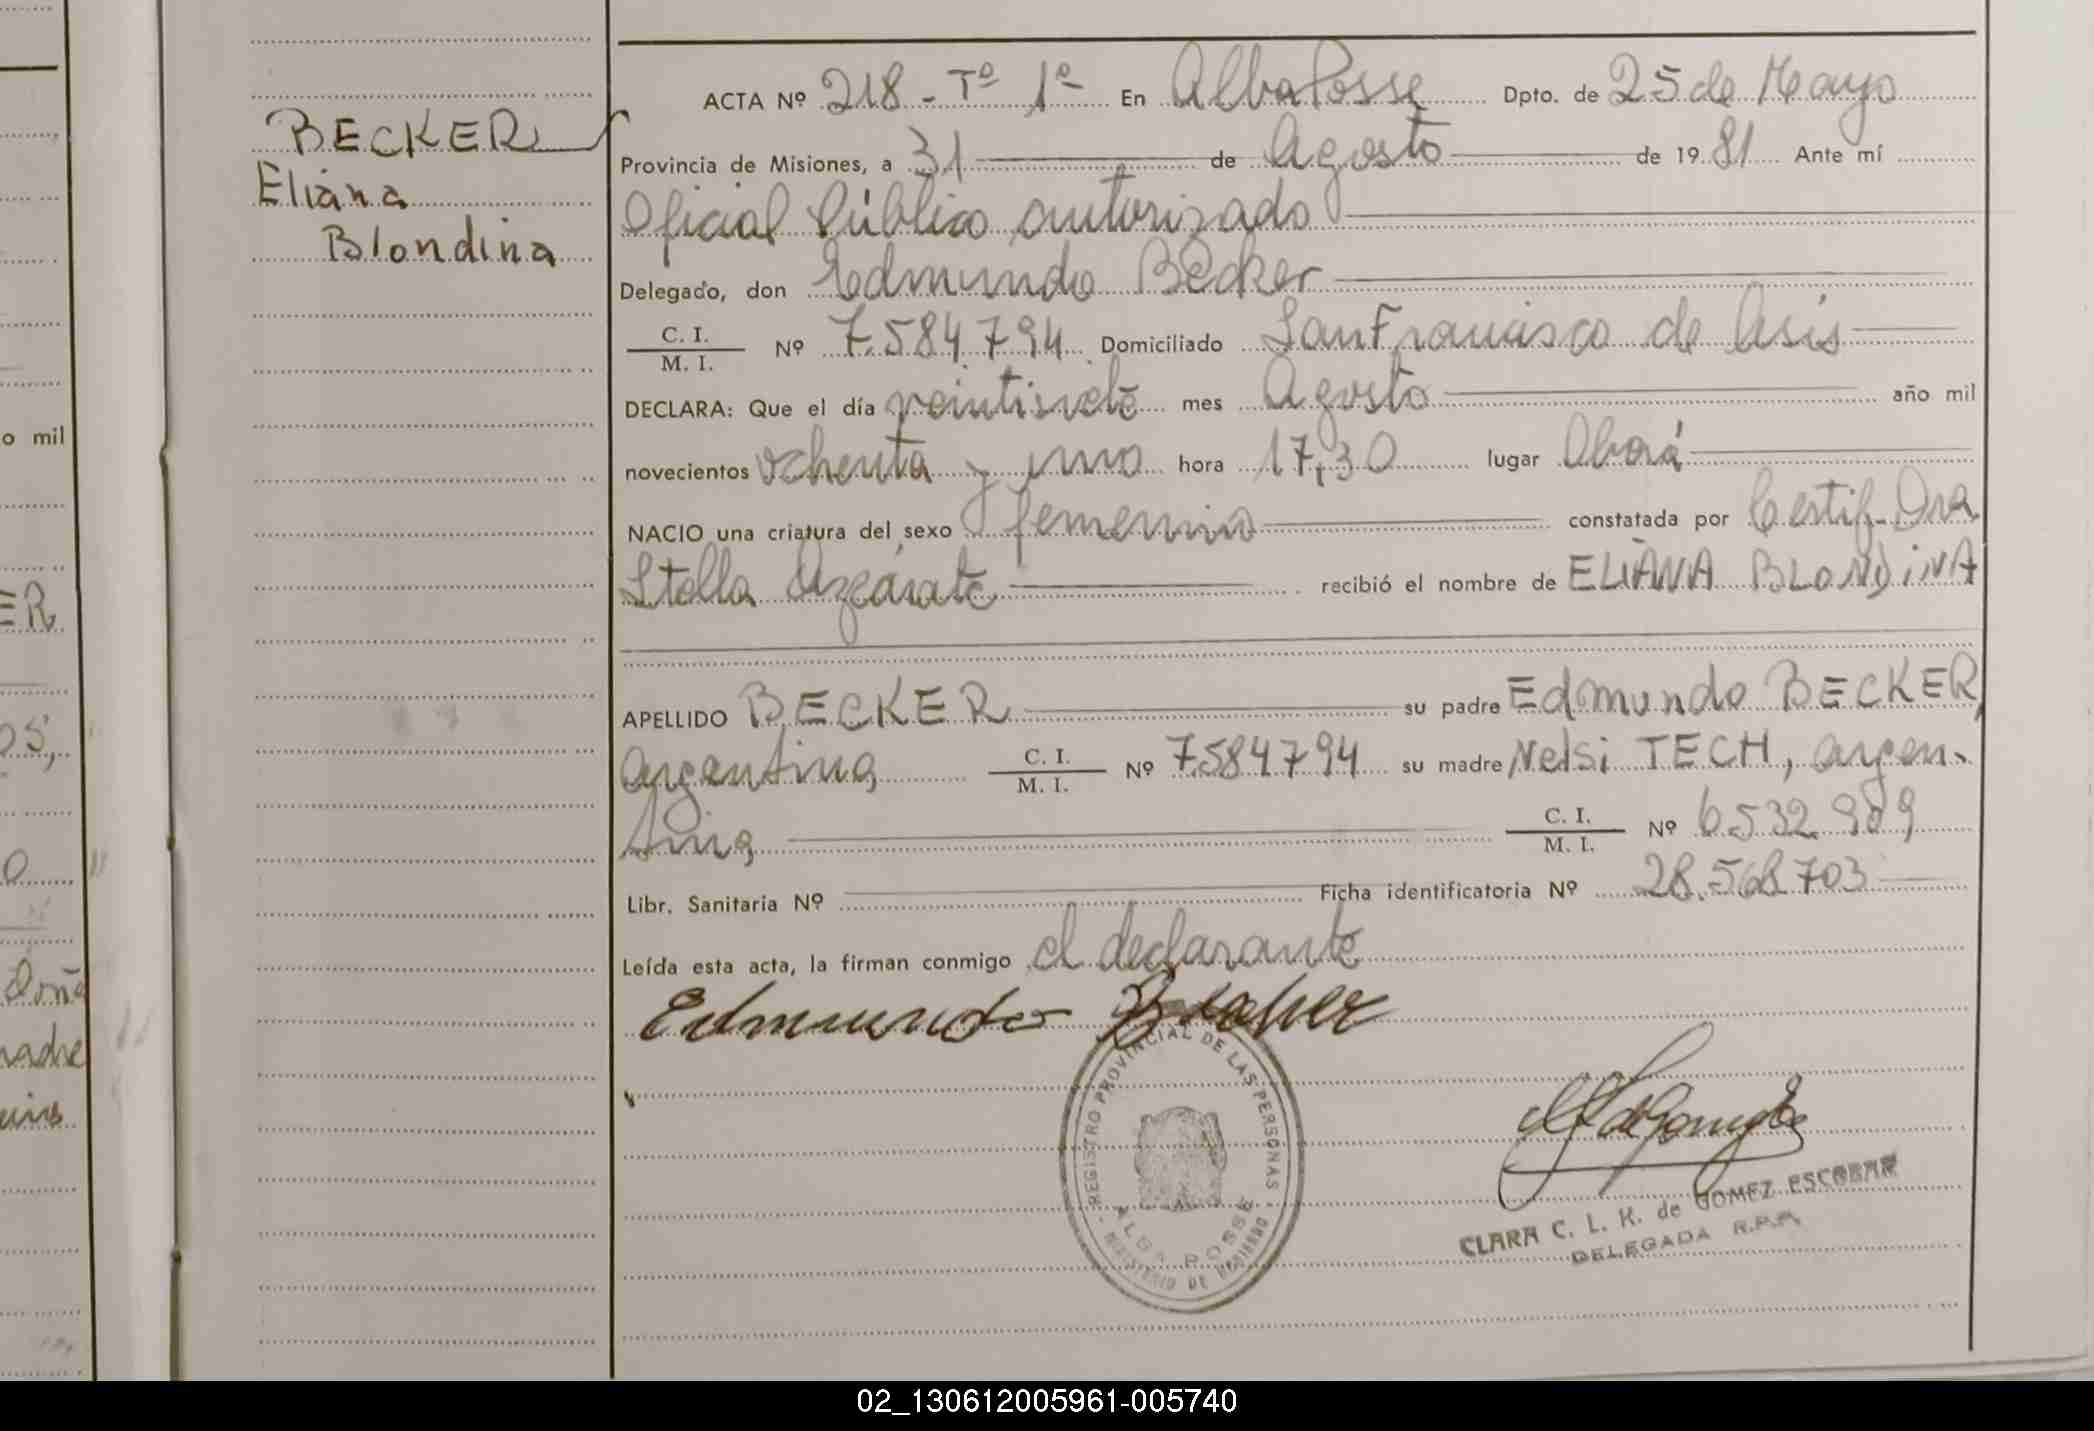 BECKER
Eliana
Blondina
ACTA Nº 218 - Tº 1º En Alba Posse Dpto. de 25 de Mayo
Provincia de Misiones, a 31 de Agosto de 1981 Ante mí
Oficial Público autorizado
Delegado, don Edmundo Becker
C. I.
M. I. Nº 7.584794 Domiciliado San Francisco de Asís
DECLARA: Que el día veintisiete mes Agosto año mil
novecientos ochenta y uno hora 17,30 lugar Oberá
NACIO una criatura del sexo femenino constatada por Certif. Dra
Stella Azcárate recibió el nombre de ELIANA BLONDINA
APELLIDO BECKER su padre Edmundo BECKER,
argentino C. I.
M. I. Nº 7584794 su madre Nelsi TECH, argen-
tina C. I.
M. I. Nº 6532989
Libr. Sanitaria Nº Ficha identificatoria Nº 28.568703
Leída esta acta, la firman conmigo el declarante
Edmundo Becker
REGISTRO PROVINCIAL DE LAS PERSONAS
ALBA POSSE
MINISTERIO DE GOBIERNO
CLARA C. L. K. de GOMEZ ESCOBAR
DELEGADA R.P.P.
o mil
ER
os,
o
Doña
madre
02_130612005961-005740